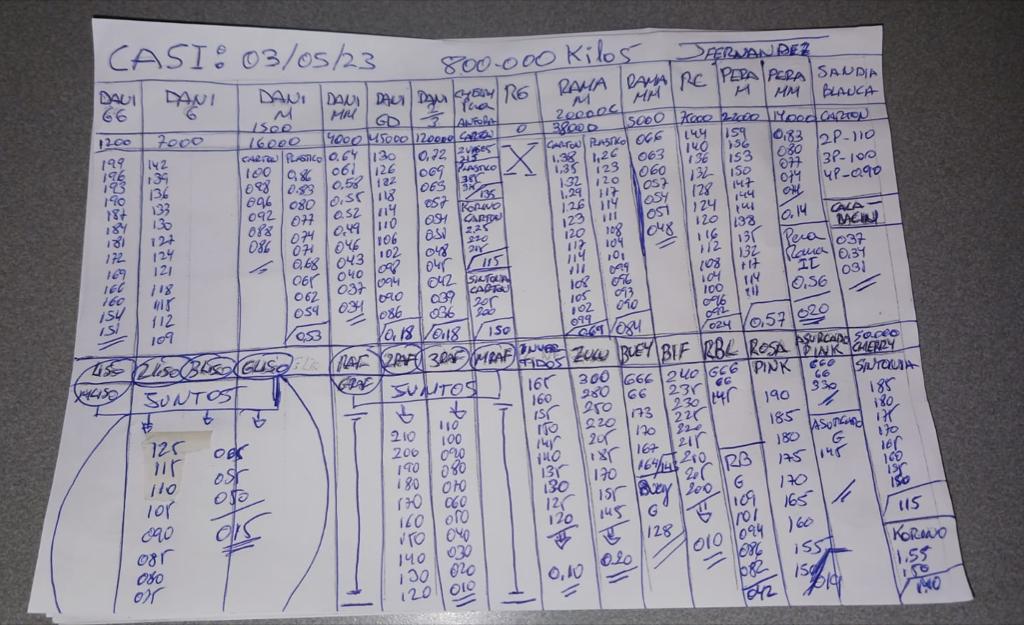 CASI: 03/05/23 800.000 Kilos JFERNANDEZ
DANI GG
1200
199
196
193
190
187
184
181
172
169
166
160
154
151
DANI G
7000
142
139
136
133
130
127
124
121
118
115
112
109
DANI M
1500
16000
CARTON
100
098
096
092
088
086
PLASTICO
0,86
0,83
080
077
074
071
0,68
065
062
059
0,53
DANI MM
4000
0,64
061
0,58
0,55
0,52
0,49
046
043
040
037
034
DANI GD
45000
130
126
122
118
114
110
106
102
098
094
090
086
0,18
DANI
120000
0,72
069
063
057
054
051
048
045
042
039
036
0,18
CHERRY Pera
ANFORA
CARTON
PLASTICO
135
KORANO
CARTON
225
220
215
115
SINTONIA
CARTON
205
200
150
RG
0
X
RAMA M
20000C
38000
CARTON
1,38
1,35
132
129
126
123
120
117
114
111
108
105
102
099
0,69
PLASTICO
1,26
123
120
117
114
111
108
104
101
099
096
093
090
084
RAMA MM
5000
066
063
060
057
054
051
048
RC
144
140
136
132
128
124
120
116
112
108
104
100
096
092
024
PERA M
22000
159
156
153
150
147
144
141
138
135
132
117
114
111
0,57
PERA MM
14000
0,83
080
077
074
071
0,14
Pera
Rama
II
0,56
020
SANDIA BLANCA
CARTON
2P-110
3P-100
4P-0,90
CALABACIN
037
0,34
031
1LISO 2LISO 3LISO GLISO
MLISO
JUNTOS
125
115
110
105
090
085
080
075
065
055
050
015
1RAF 2RAF 3RAF MRAF
GRAF
JUNTOS
210
206
190
180
170
160
150
140
130
120
110
100
090
080
070
060
050
040
030
020
010
INVERTIDOS
165
160
155
150
145
140
135
130
125
120
0,10
ZULU
300
280
250
220
205
185
170
155
145
0,20
BUEY
666
66
173
170
167
164
Buey
G
128
BIF
240
235
230
225
220
215
210
205
200
010
RBL
666
66
145
RB
G
109
101
094
086
082
042
ROSA
PINK
190
185
180
175
170
165
160
155
150
ASURCADO
PINK
666
66
230
ASURCADO
G
145
CHERRY
SINTONIA
185
180
175
170
165
160
155
150
115
KORANO
1,55
1,50
1,40